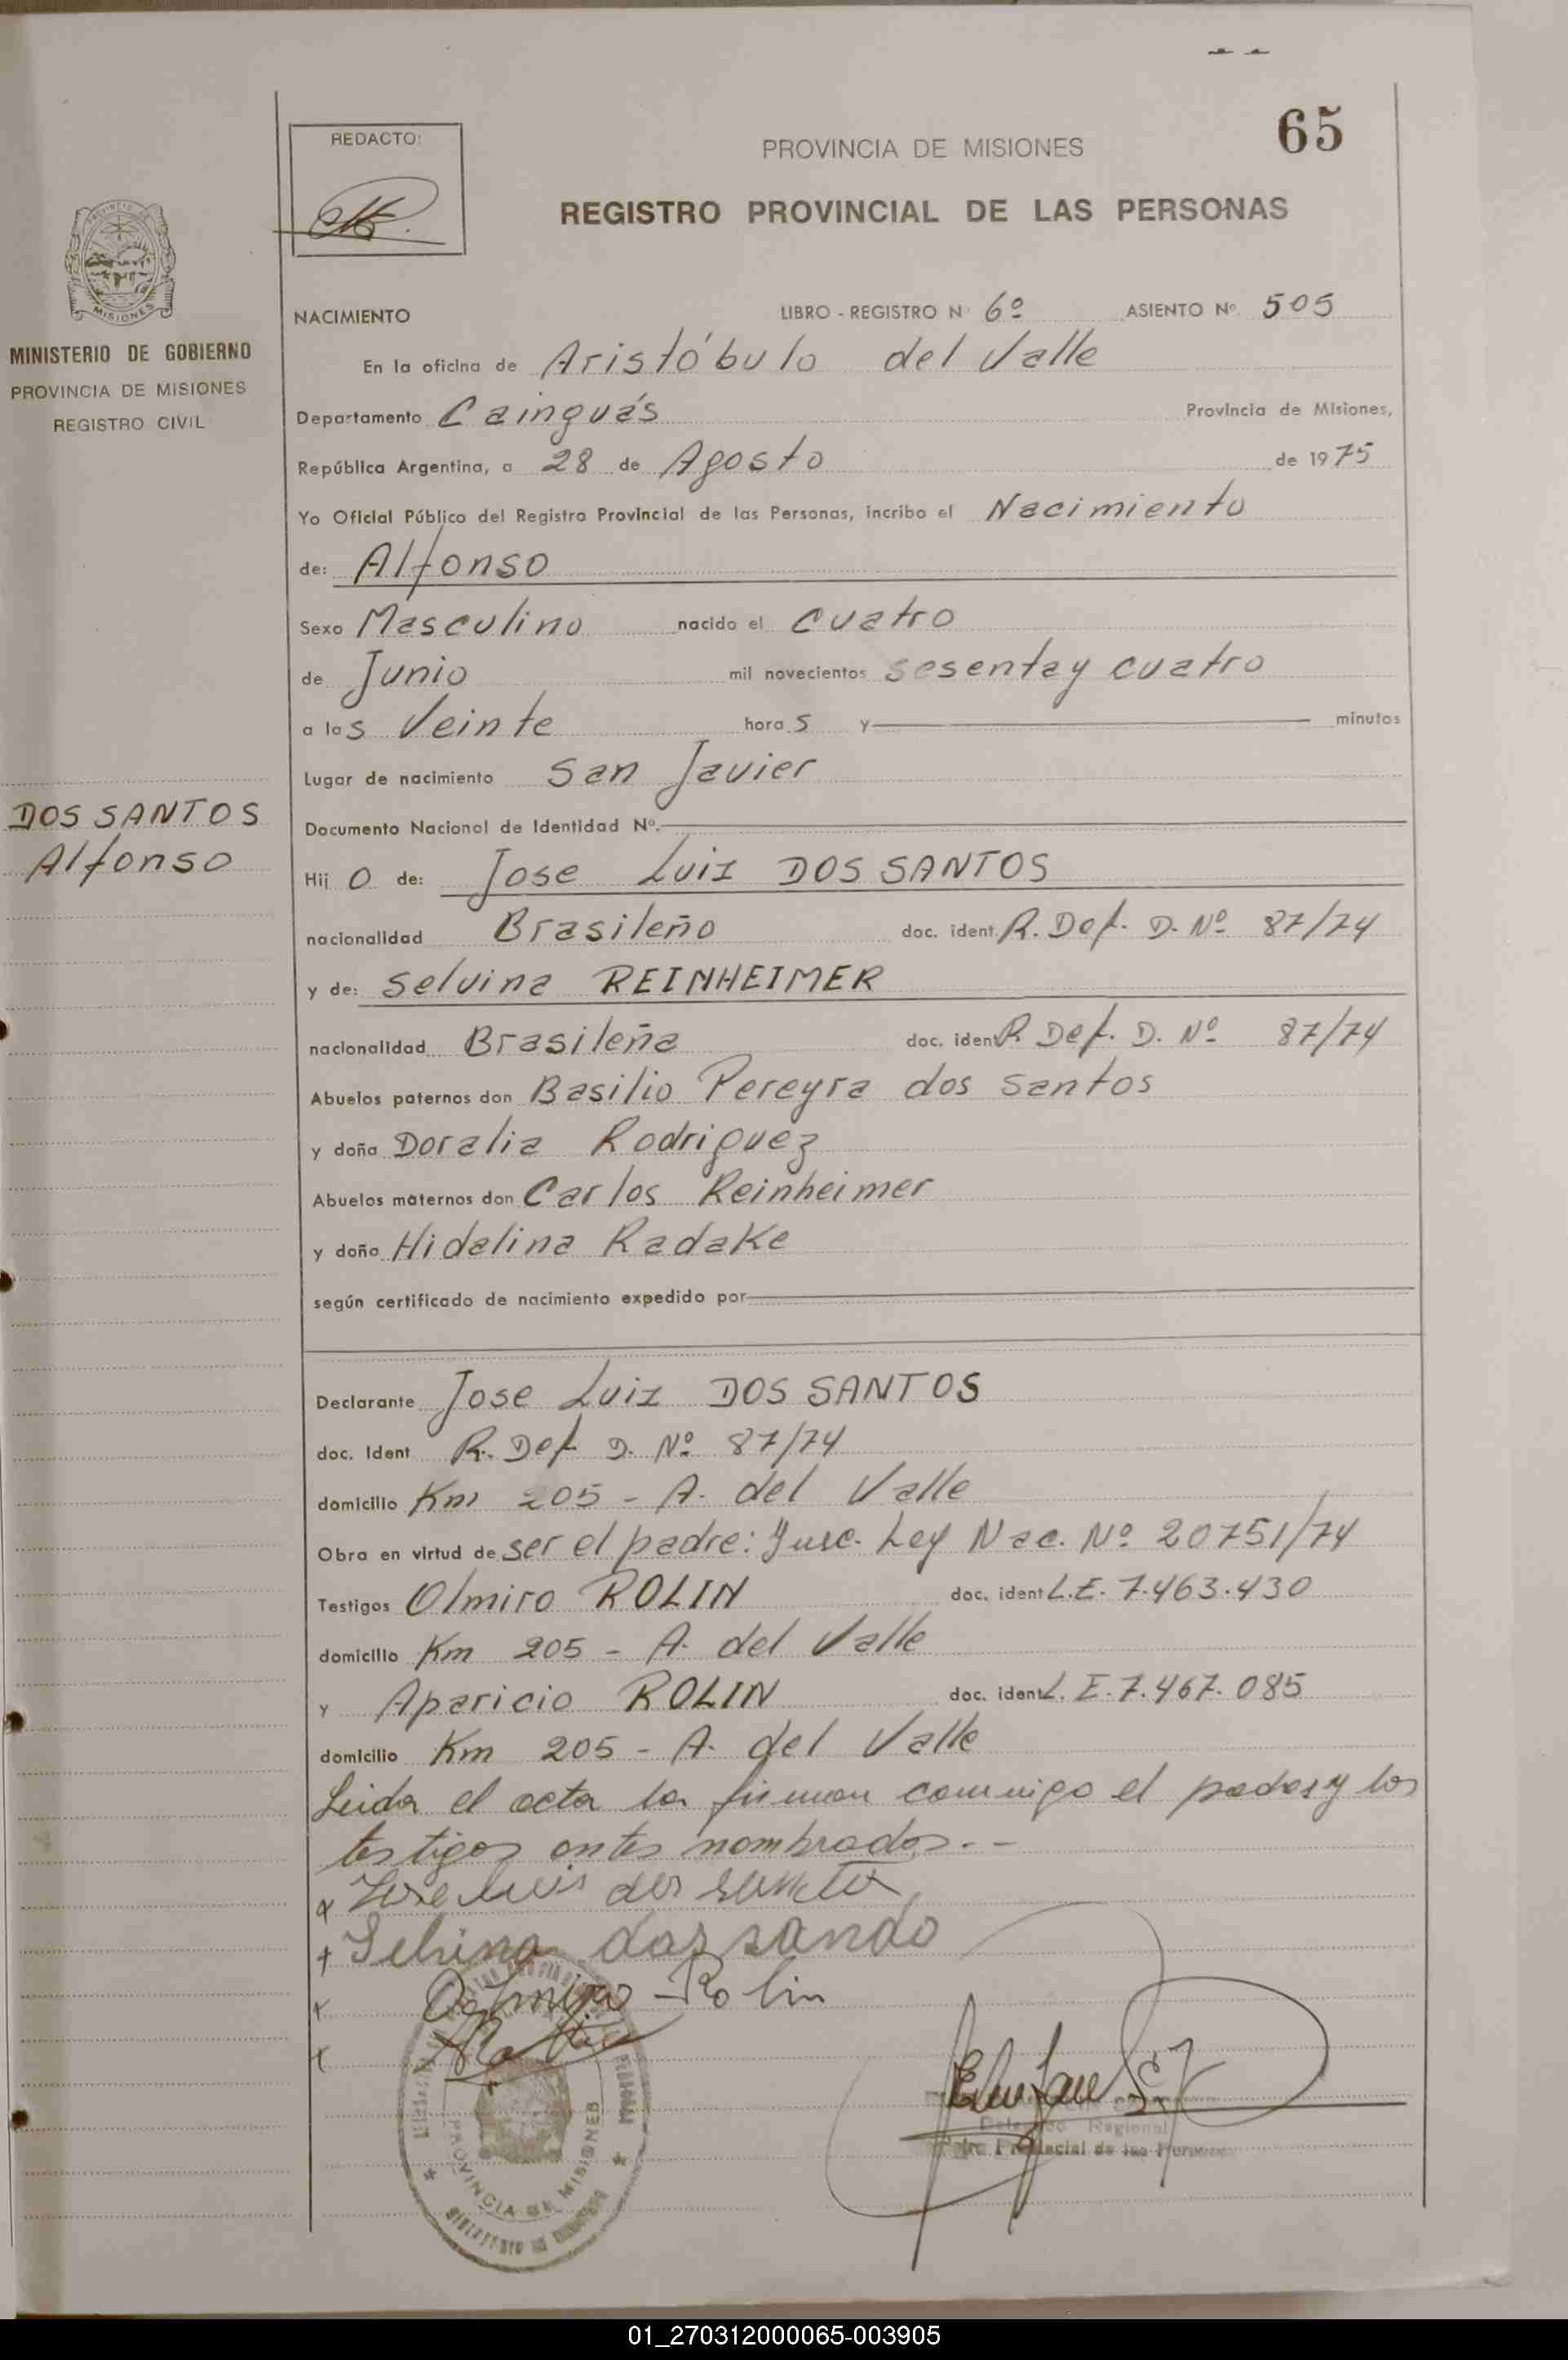 65
REDACTO:
PROVINCIA DE MISIONES
REGISTRO PROVINCIAL DE LAS PERSONAS
MISIONES
MINISTERIO DE GOBIERNO
PROVINCIA DE MISIONES
REGISTRO CIVIL
NACIMIENTO LIBRO - REGISTRO N° 6º ASIENTO Nº 505
En la oficina de Aristóbulo del Valle
Departamento Cainguás Provincia de Misiones,
República Argentina, a 28 de Agosto de 1975
Yo Oficial Público del Registro Provincial de las Personas, incribo el Nacimiento
de: Alfonso
Sexo Masculino nacido el cuatro
de Junio mil novecientos sesenta y cuatro
a las Veinte horas y minutos
Lugar de nacimiento San Javier
Documento Nacional de Identidad Nº.
DOS SANTOS
Alfonso
Hij o de: Jose Luiz DOS SANTOS
nacionalidad Brasileño doc. ident. R. Def. D. Nº 87/74
y de: Selvina REINHEIMER
nacionalidad Brasileña doc. ident R Def. D. Nº 87/74
Abuelos paternos don Basilio Pereyra dos Santos
y doña Doralia Rodriguez
Abuelos maternos don Carlos Reinheimer
y doña Hidalina Radake
según certificado de nacimiento expedido por
Declarante Jose Luiz DOS SANTOS
doc. Ident R. Def D. Nº 87/74
domicilio Km 205 - A. del Valle
Obra en virtud de ser el padre: Ley Nac. Nº 20751/74
Testigos Olmiro ROLIN doc. ident L.E. 7.463.430
domicilio Km 205 - A. del Valle
y Aparicio ROLIN doc. ident L.E. 7.467.085
domicilio Km 205 - A. del Valle
Leida el acta la firman conmigo el padre y los
testigos antes nombrados. -
x Jose luis dos santos
+ Selvina dos sando
x Olmiro Rolin
x
Delegado Regional
Provincial de las Personas
PROVINCIA DE MISIONES
01_270312000065-003905